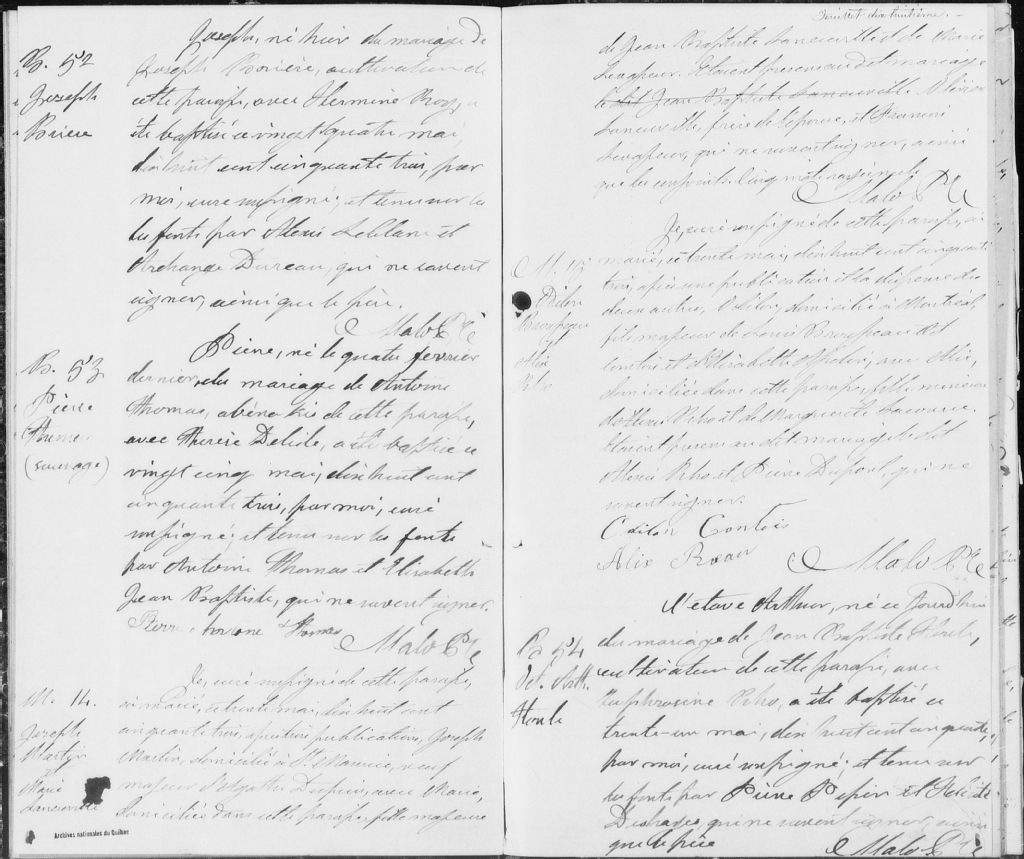 B. 52
Joseph
Briere
Joseph, né hier du mariage de
Joseph Brière, cultivateur de
cette paroisse, avec Hermine Roy, a
été baptisé ce vingt quatre mai,
dix huit cent cinquante trois, par
moi, curé soussigné; et tenu sur les
les fonts par Alexis Leblanc et
Archange Dureau, qui ne savent
signer, ainsi que le père.
Malo Ptre
B. 53
Pierre
(sauvage)
Pierre, né le quatre fevrier
dernier, du mariage de Antoine
Thomas, abénakis de cette paroisse,
avec Thérèse Delisle, a été baptisé ce
vingt cinq mai, dix huit cent
cinquante trois, par moi, curé
soussigné; et tenu sur les fonts
par Antoine Thomas et Elisabeth
Jean Baptiste, qui ne savent signer.
Pierre Antoine Thomas
Malo Ptre
M. 14.
Joseph
Martin
et
Marie
Je, curé soussigné de cette paroisse,
ai marié, ce trente mai, dix huit cent
cinquante trois, après une publication, Joseph
Martin, domicilié à St. Maurice, veuf
majeur d'Agathe Dupuis, avec Marie,
domiciliée dans cette paroisse, fille majeure
Archives nationales du Québec
Feuillet dix huitième.
de Jean Baptiste Lancerville et de Marie
Levasseur. Etoient présens au dit mariage
le dit Jean Baptiste Lancerville Olivier
Lancerville, frère de l'épouse, et Francois
Levasseur, qui ne savent signer, ainsi
que les conjoints. Cinq mots rayés nuls.
Malo Ptre
M. 15
et
Je, curé soussigné de cette paroisse, ai
marié, ce trente mai, dix huit cent cinquante
trois, après une publication et la dispense des
deux autres, domicilié à Montréal,
fils majeur de Louis
et d'Elisabeth avec Alix,
domiciliée dans cette paroisse, fille mineure
d'Alexis Riho et de Marguerite
Etoient présens au dit mariage le dit
Alexis Riho et Pierre Dupont, qui ne
savent signer.
Malo Ptre
B 54
Oct. Arth.
Houle
Octave Arthur, né ce jourd'hui
du mariage de Jean Baptiste Houle,
cultivateur de cette paroisse, avec
Euphrosine Riho, a été baptisé ce
trente-un mai, dix huit cent cinquante
par moi, curé soussigné; et tenu sur
les fonts par Pierre Pepin et Félicité
qui ne savent signer, ainsi
que le père
Malo Ptre